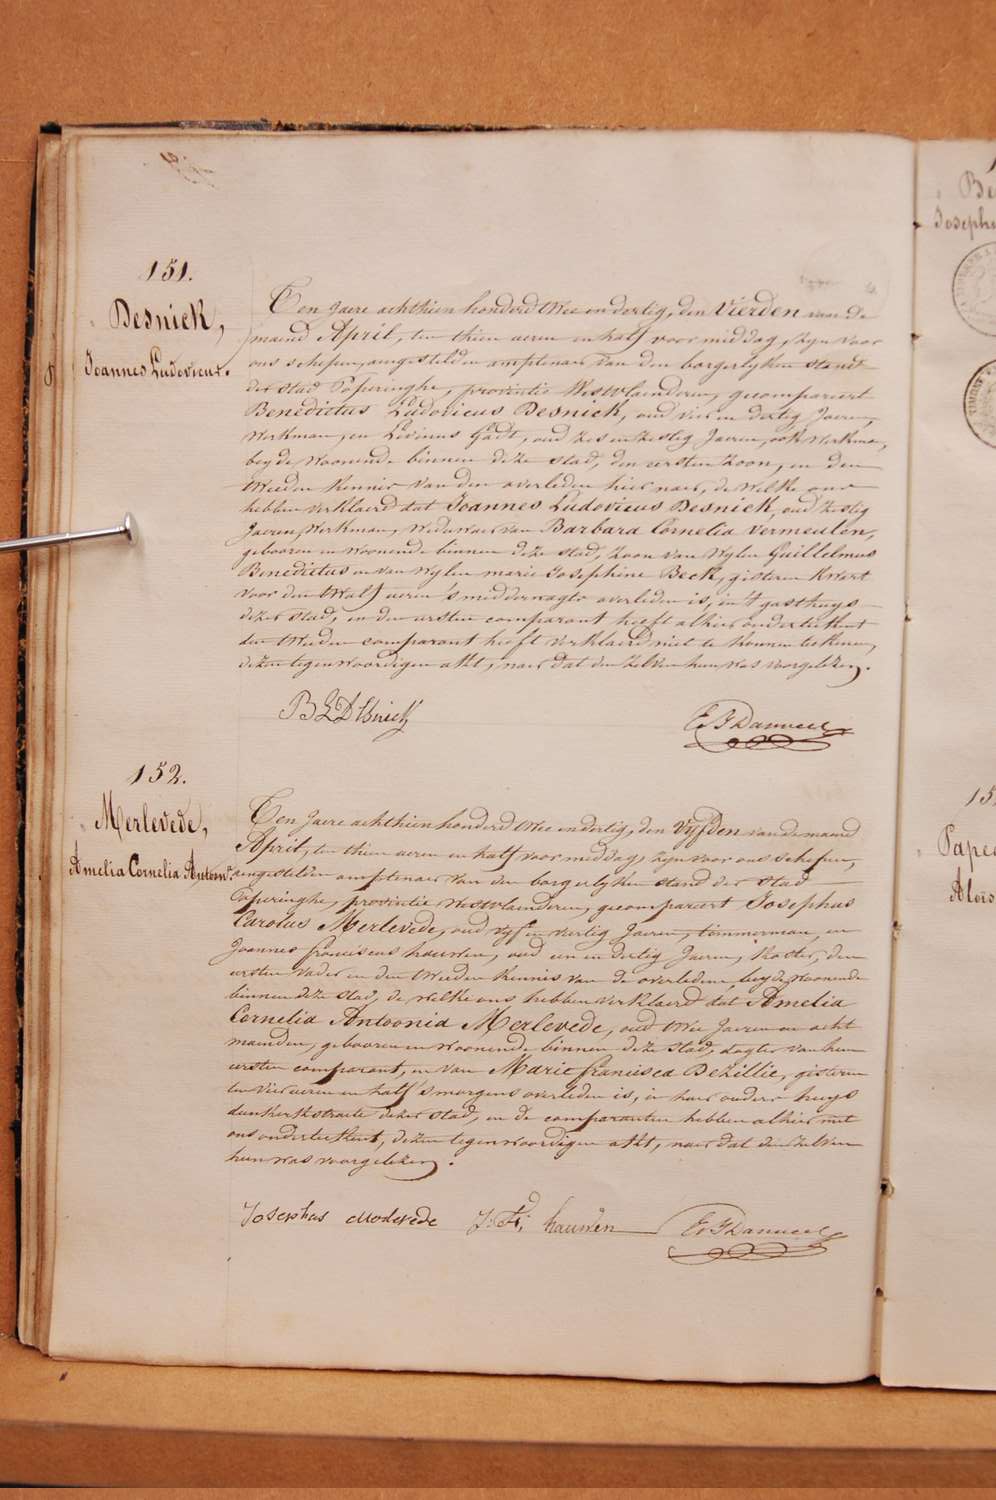 151.
Desnick,
Joannes Ludovicus.
Ten jaere achthien honderd twee en dertig, den Vierden van de
maend April, ten thien ueren en half voor middag, zyn voor
ons schepen, aengestelden amptenaer van den borgerlyken stand
der stad Poperinghe, provintie Westvlaenderen, gecompareert
Benedictus Ludovicus Desnick, oud vier en dertig Jaeren,
werkman, en Livinus Gadt, oud zes en zestig Jaeren, ook werkman,
beyde woonende binnen deze stad, den eersten zoon, en den
tweeden kennis van den overleden hier naer, de welke ons
hebben verklaerd dat Joannes Ludovicus Desnick, oud zestig
Jaeren, werkman, weduwaer van Barbara Cornelia Vermeulen,
gebooren en woonende binnen deze stad, zoon van wylen Guillelmus
Benedictus en van wylen marie Josephine Beck, gisteren kwart
voor den twalf ueren 's middernagts overleden is, in 't gasthuys
dezer stad, en den eersten comparant heeft alhier onderteekent
den tweeden comparant heeft verklaerd niet te konnen teekenen,
dezen tegenwoordigen akt, naer dat den zelven hun was voorgelezen.
152.
Merlevede,
Amelia Cornelia Antoonia.
Ten jaere achthien honderd twee en dertig, den Vyfden van de maend
April, ten thien ueren en half voor middag, zyn voor ons schepen,
aengestelden amptenaer van den borgerlyken stand der stad
Poperinghe, provintie Westvlaenderen, gecompareert Josephus
Carolus Merlevede, oud vyf en veertig Jaeren, timmerman, en
Joannes franciscus hauwen, oud een en dertig Jaeren, koster, den
eersten vader en den tweeden kennis van de overledene, beyde woonende
binnen deze stad, de welke ons hebben verklaerd dat Amelia
Cornelia Antoonia Merlevede, oud twee Jaeren en acht
maenden, gebooren en woonende binnen deze stad, dogter van hem
eersten comparant, en van Marie francisca Dezillie, gisteren
ten vier ueren en half smorgens overleden is, in haer ouders huys
dunkerkstraete dezer stad, en de comparanten hebben alhier met
ons onderteekent, dezen tegenwoordigen akt, naer dat den zelven
hun was voorgelezen.
Josephus Merlevede J: Fr: hauwen
Josephu
15
Papee
Aloïs